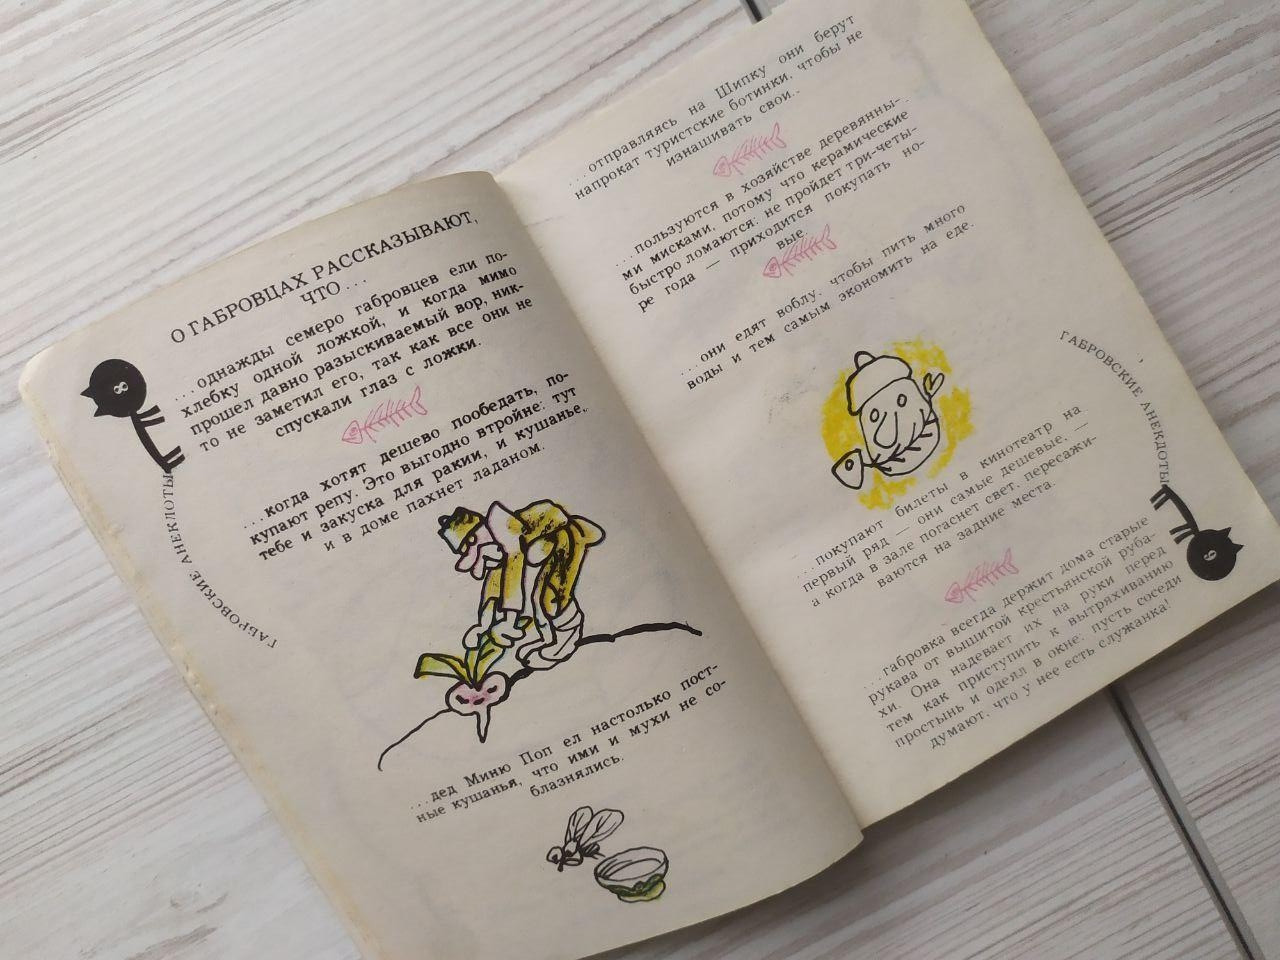 О ГАБРОВЦАХ РАССКАЗЫВАЮТ,
ЧТО...
...однажды семеро габровцев ели по-
хлебку одной ложкой, и когда мимо
прошел давно разыскиваемый вор, ник-
то не заметил его, так как все они не
спускали глаз с ложки.
...когда хотят дешево пообедать, по-
купают репу. Это выгодно втройне: тут
тебе и закуска для ракии, и кушанье,
и в доме пахнет ладаном.
...дед Миню Поп ел настолько пост-
ные кушанья, что ими и мухи не со-
блазнялись.
8
ГАБРОВСКИЕ АНЕКДОТЫ
...отправляясь на Шипку они берут
напрокат туристские ботинки, чтобы не
изнашивать свои..
...пользуются в хозяйстве деревянны-
ми мисками, потому что керамические
быстро ломаются: не пройдет три-четы-
ре года — приходится покупать но-
вые.
...они едят воблу, чтобы пить много
воды и тем самым экономить на еде.
...покупают билеты в кинотеатр на
первый ряд — они самые дешевые, —
а когда в зале погаснет свет, пересажи-
ваются на задние места.
...габровка всегда держит дома старые
рукава от вышитой крестьянской руба-
хи. Она надевает их на руки перед
тем как приступить к вытряхиванию
простынь и одеял в окне: пусть соседи
думают, что у нее есть служанка!
ГАБРОВСКИЕ АНЕКДОТЫ
9